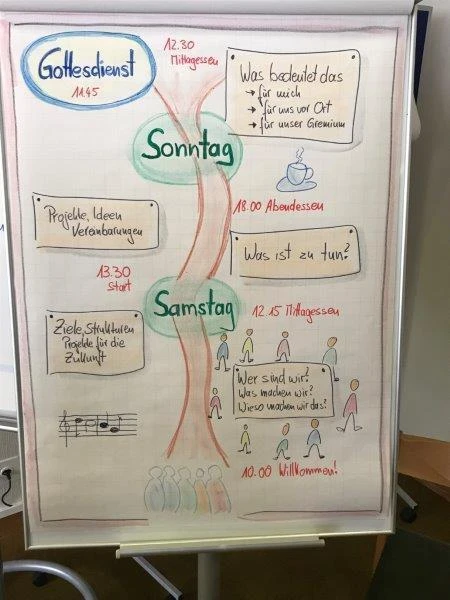 Gottesdienst
11.45
12.30
Mittagessen
Was bedeutet das
→ für mich
→ für uns vor Ort
→ für unser Gremium
Sonntag
18.00 Abendessen
Projekte, Ideen
Vereinbarungen
Was ist zu tun?
13.30
Start
Samstag
12.15 Mittagessen
Ziele, Strukturen
Projekte für die
Zukunft
Wer sind wir?
Was machen wir?
Wieso machen wir das?
10.00 Willkommen!